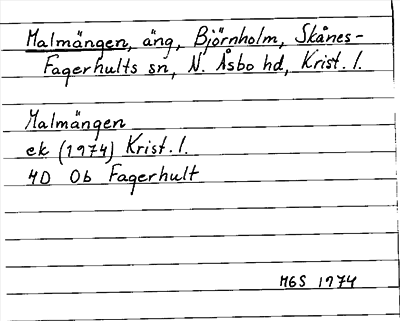 Malmängen, äng, Björnholm, Skånes-
Fagerhults sn, N. Åsbo hd, Krist. l.
Malmängen
ek (1974) Krist. l.
4D Ob Fagerhult
MGS 1974